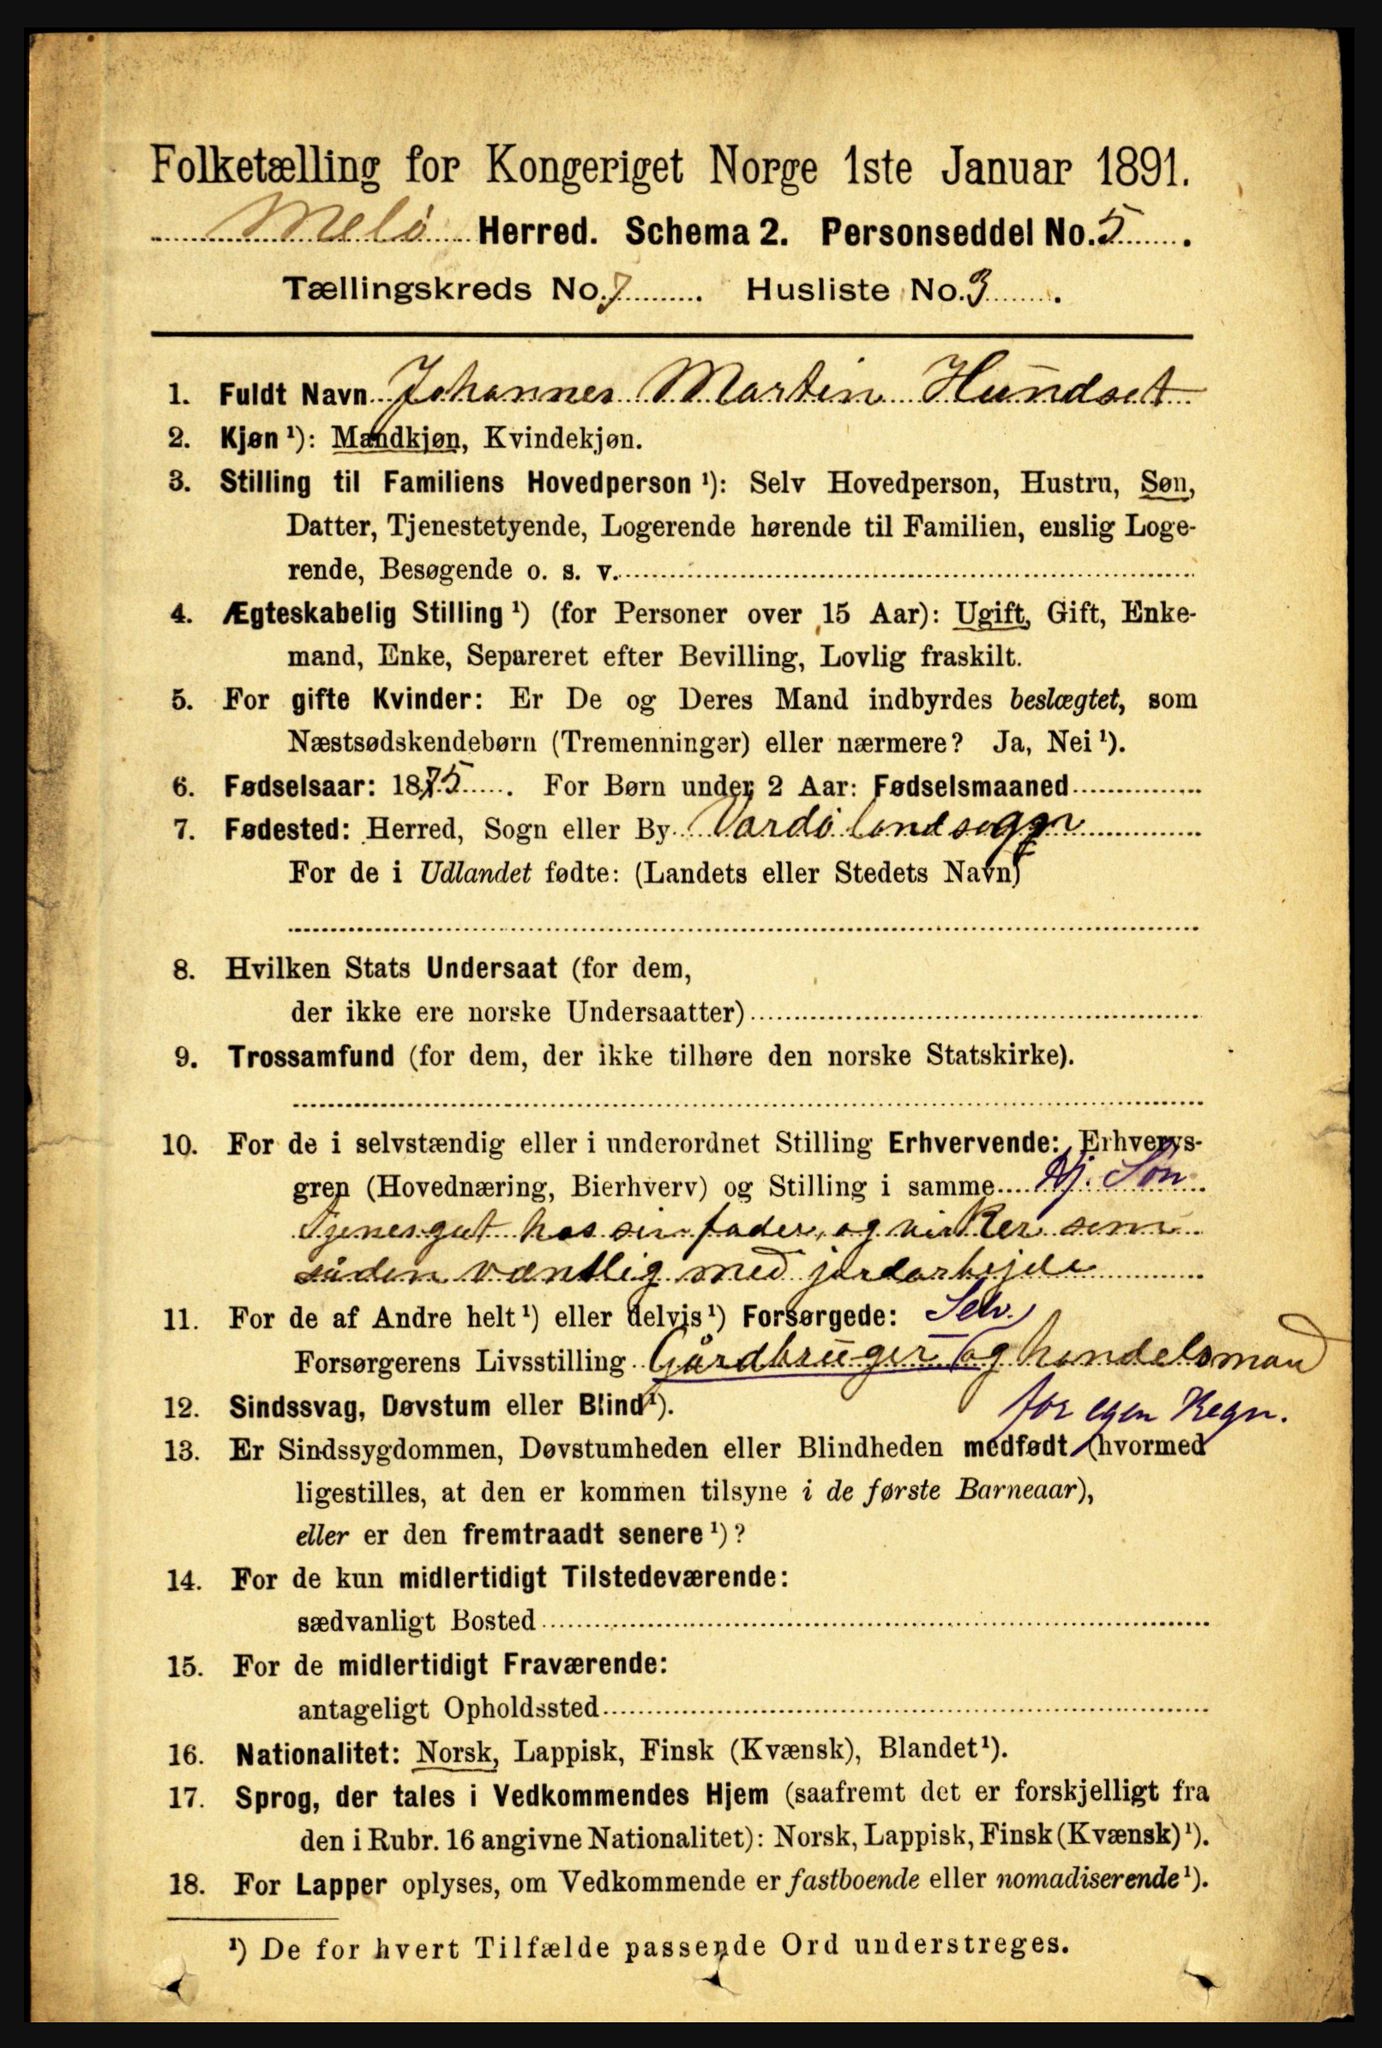 Folketælling for Kongeriget Norge 1ste Januar 1891.
Melö Herred. Schema 2. Personseddel No. 5.
Tællingskreds No. 7. Husliste No. 3.
1. Fuldt Navn Johannes Martin Hundset
2. Kjøn ¹): Mandkjøn, Kvindekjøn.
3. Stilling til Familiens Hovedperson ¹): Selv Hovedperson, Hustru, Søn,
Datter, Tjenestetyende, Logerende hørende til Familien, enslig Loge-
rende, Besøgende o. s. v.
4. Ægteskabelig Stilling ¹) (for Personer over 15 Aar): Ugift, Gift, Enke-
mand, Enke, Separeret efter Bevilling, Lovlig fraskilt.
5. For gifte Kvinder: Er De og Deres Mand indbyrdes beslægtet, som
Næstsødskendebørn (Tremenninger) eller nærmere? Ja, Nei ¹).
6. Fødselsaar: 1875. For Børn under 2 Aar: Fødselsmaaned
7. Fødested: Herred, Sogn eller By Vardö landsogn
For de i Udlandet fødte: (Landets eller Stedets Navn)
8. Hvilken Stats Undersaat (for dem,
der ikke ere norske Undersaatter)
9. Trossamfund (for dem, der ikke tilhøre den norske Statskirke).
10. For de i selvstændig eller i underordnet Stilling Erhvervende: Erhvervs-
gren (Hovednæring, Bierhverv) og Stilling i samme Hj. Søn
Tjenesgut hos sin fader, og virker som
såden væntlig med jordarbejde
11. For de af Andre helt ¹) eller delvis ¹) Forsørgede: Selv.
Forsørgerens Livsstilling Gårdbruger og handelsmand
for egen Regn.
12. Sindssvag, Døvstum eller Blind ¹).
13. Er Sindssygdommen, Døvstumheden eller Blindheden medfødt (hvormed
ligestilles, at den er kommen tilsyne i de første Barneaar),
eller er den fremtraadt senere ¹)?
14. For de kun midlertidigt Tilstedeværende:
sædvanligt Bosted
15. For de midlertidigt Fraværende:
antageligt Opholdssted
16. Nationalitet: Norsk, Lappisk, Finsk (Kvænsk), Blandet ¹).
17. Sprog, der tales i Vedkommendes Hjem (saafremt det er forskjelligt fra
den i Rubr. 16 angivne Nationalitet): Norsk, Lappisk, Finsk (Kvænsk) ¹).
18. For Lapper oplyses, om Vedkommende er fastboende eller nomadiserende ¹).
¹) De for hvert Tilfælde passende Ord understreges.